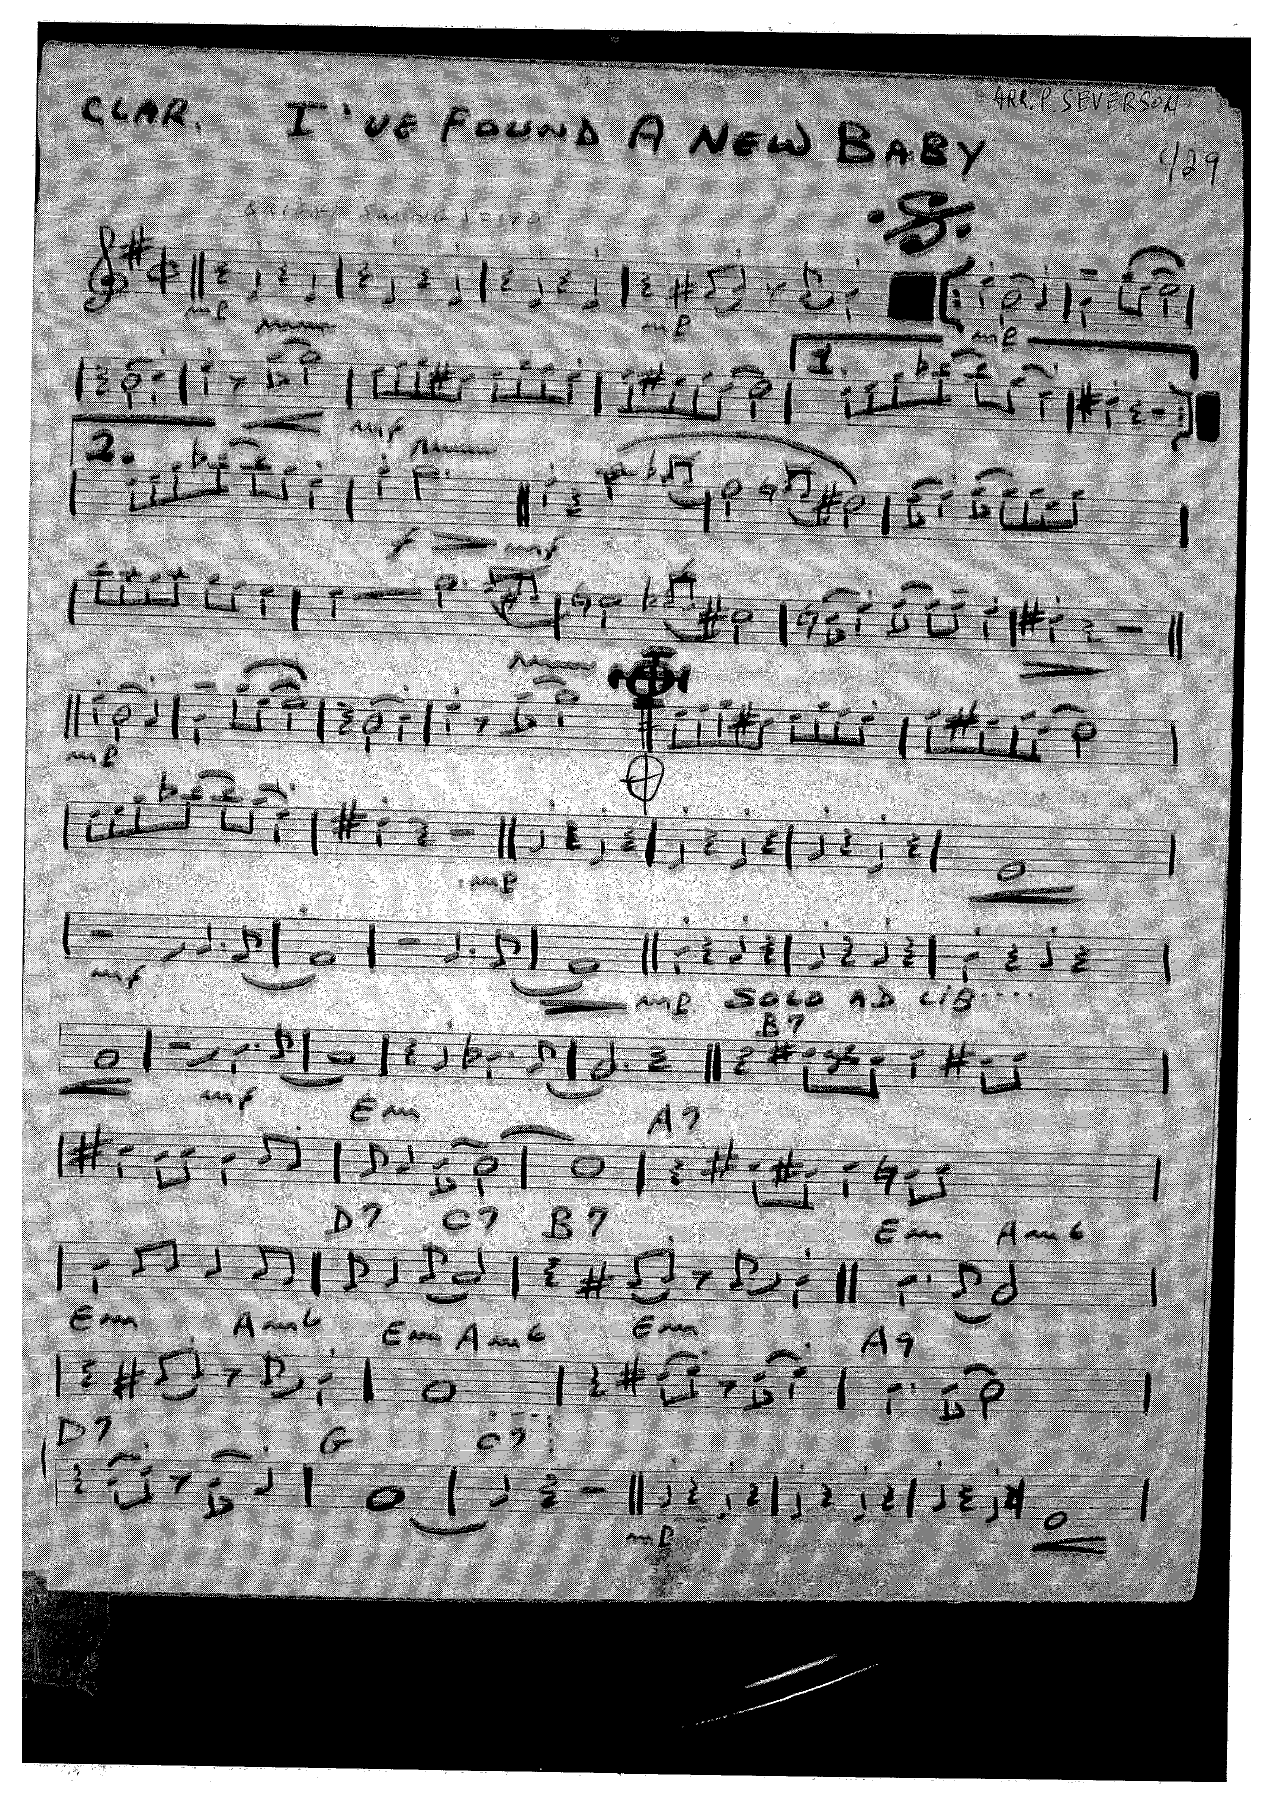 ARR. P SEVERSON
CLAR. I'VE FOUND A NEW BABY
4/29
BRIGHT SWING
mp mp mp
1.
2. mf
f mf
mp
mp
mf mp SOLO AD LIB....
B7
mf Em A7
D7 C7 B7 Em Am6
Em Am6 Em Am6 Em A9
D7 G C7
mp